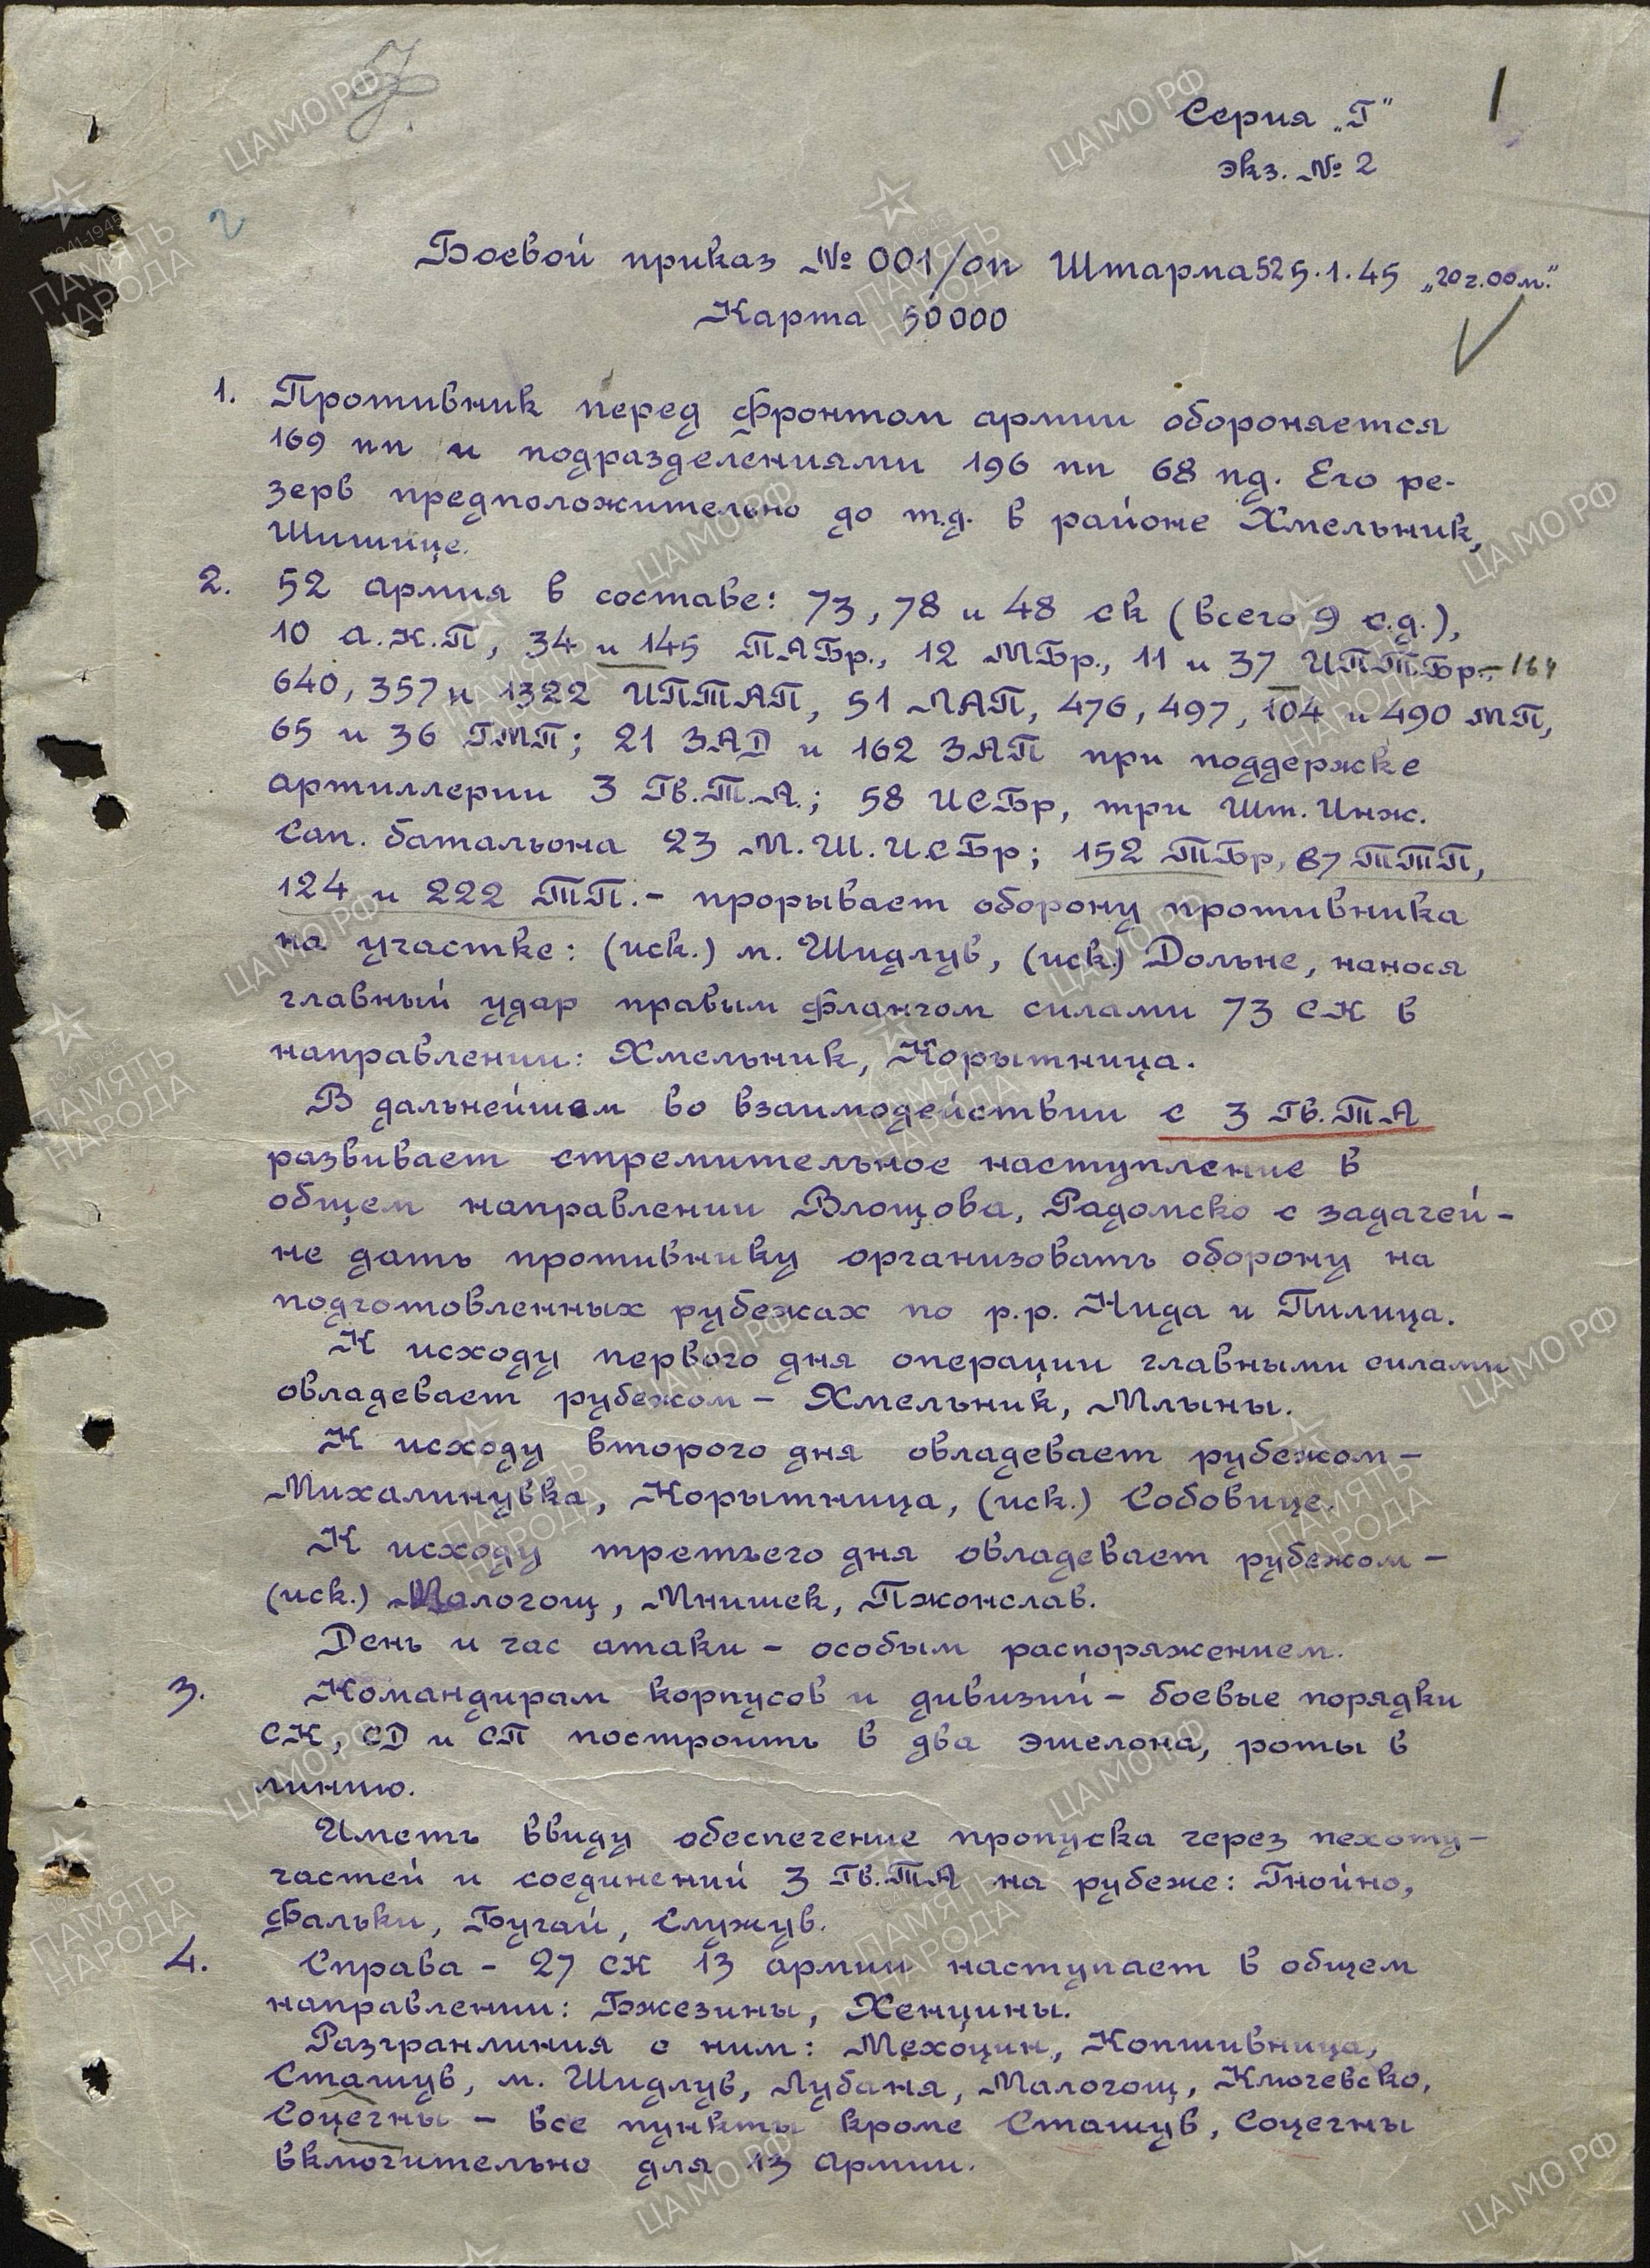 1
Серия „Г"
экз. № 2
2
Боевой приказ № 001/оп Штарма 52 5.1.45 „20 г. 00 м."
Карта 50000
1. Противник перед фронтом армии обороняется
169 пп и подразделениями 196 пп 68 пд. Его ре-
зерв предположительно до т.д. в районе Хмельник,
Шишице.
2. 52 армия в составе: 73, 78 и 48 ск (всего 9 с.д.),
10 а.к.п, 34 и 145 ПАБр., 12 МБр., 11 и 37 ИПТБр.-
640, 357 и 1322 ИПТАП, 51 ЛАП, 476, 497, 104 и 490 МП,
65 и 36 ГМП; 21 ЗАД и 162 ЗАП при поддержке
артиллерии 3 Гв.Т.А.; 58 ИСБр, три Шт. Инж.
Сап. батальона 23 М.Ш.И.СБр; 152 ТБр, 87 ТТП,
124 и 222 ТП.- прорывает оборону противника
на участке: (иск.) м. Шидлув, (иск.) Дольне, нанося
главный удар правым флангом силами 73 СК в
направлении: Хмельник, Корытница.
В дальнейшем во взаимодействии с 3 Гв.ТА
развивает стремительное наступление в
общем направлении Влощова, Радомско с задачей -
не дать противнику организовать оборону на
подготовленных рубежах по р.р. Нида и Пилица.
К исходу первого дня операции главными силами
овладевает рубежом - Хмельник, Млыны.
К исходу второго дня овладевает рубежом -
Михалинувка, Корытница, (иск.) Собовице.
К исходу третьего дня овладевает рубежом -
(иск.) Малогощ, Мнишек, Пжонслав.
День и час атаки - особым распоряжением.
3. Командирам корпусов и дивизий - боевые порядки
СК, СД и СП построить в два эшелона, роты в
линию.
Иметь ввиду обеспечение пропуска через пехоту -
частей и соединений 3 Гв.ТА на рубеже: Гнойно,
Фальки, Бугай, Служув.
4. Справа - 27 СК 13 армии наступает в общем
направлении: Бжезины, Хенцины.
Разгранлиния с ним: Мехоцин, Копшивница,
Сташув, м. Шидлув, Лубаня, Малогощ, Ключевско,
Соцечны - все пункты кроме Сташув, Соцечны
включительно для 13 Армии.
ЦАМО.РФ
ПАМЯТЬ
НАРОДА